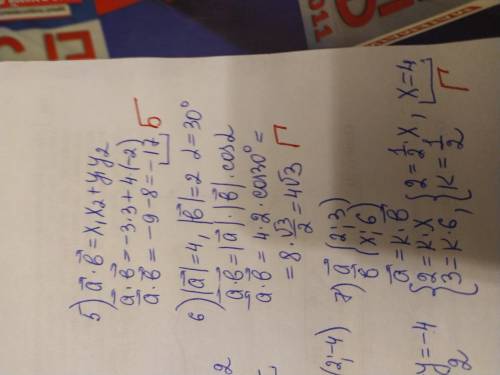 2011
5) a⃗·b⃗ = x₁x₂ + y₁y₂
a⃗·b⃗ = -3·3+4(-2)
a⃗·b⃗ = -9-8 = -17 Б
6) |a⃗|=4, |b⃗|=2 α=30°
a⃗·b⃗=|a⃗|·|b⃗|·cosα
a⃗·b⃗ = 4·2·cos30° =
= 8·√3/2 = 4√3 Г
7) a⃗ (2;3)
b⃗ (x;6)
a⃗ = k·b⃗
{2=k·x {2=1/2·x, x=4
{3=k·6, {k=1/2 Г
2
(2;-4)
y=-4
2